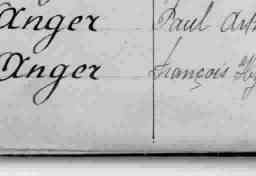 Anger Paul Art
Anger François Hy